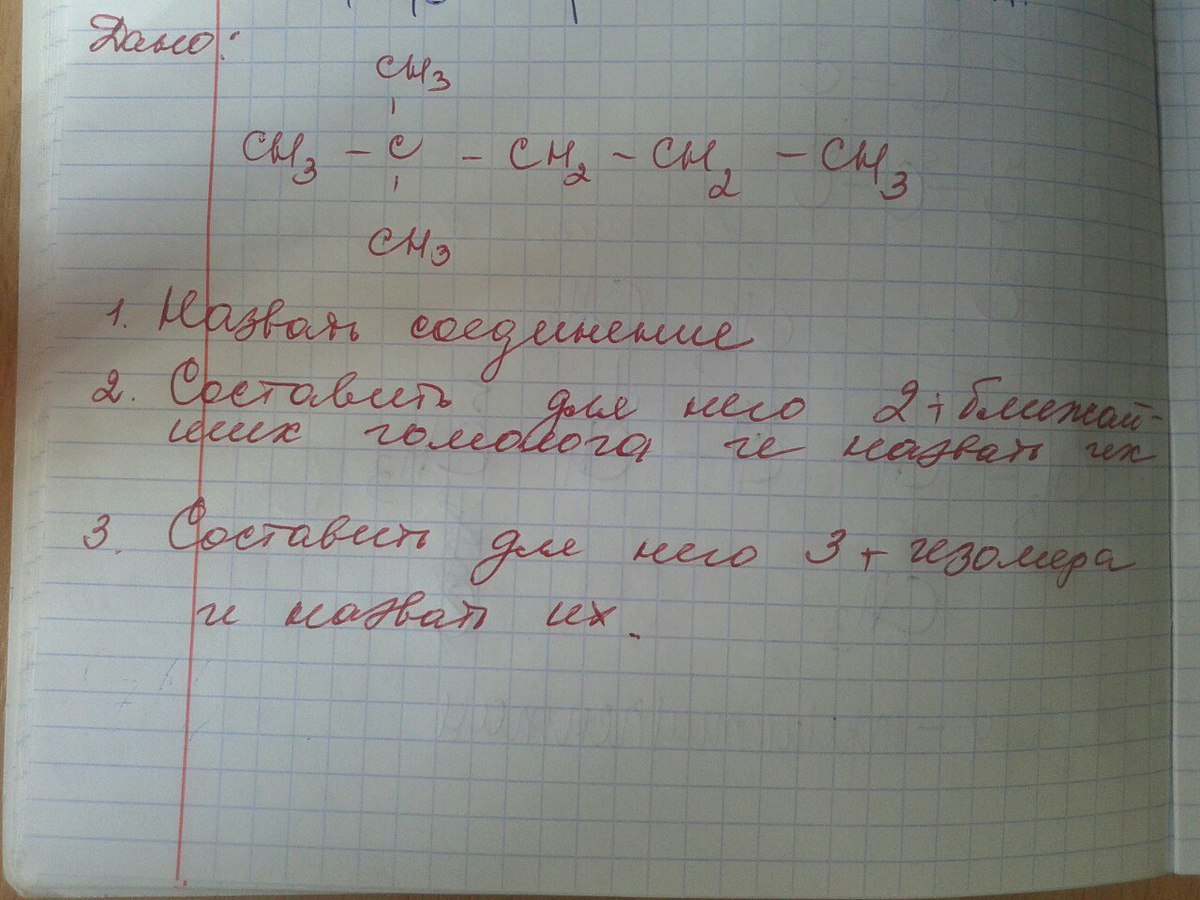 Дано:
CH3
CH3 – C – CH2 – CH2 – CH3
CH3
1. Назвать соединение
2. Составить для него 2 + ближай-
ших гомолога и назвать их
3. Составить для него 3 + изомера
и назвать их.